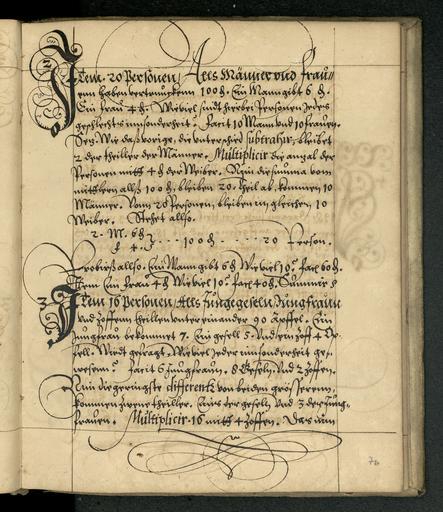 2
Item. 20 Personen / Als Männer vnd Frau„
enn haben vertrunckenn 100 ₰. Ein Mann gibt 6 ₰.
Ein frau 4 ₰. Wieviel sindt hierbei Personen Jedes
geschlechts innsonderheit? Facit 10 Mann vnd 10 frauen.
Setz. Wie das vorige, die vnterschied subtrahir, bleibet
2 der theiller der Männer. Multiplicir die anzal der
Personen mitt 4 ₰ der Weiber. Nim die summa vom
mittlern alls 100 ₰, bleiben 20. theil ab, kommen 10
Männer. Vom 20 Personen, bleiben im gleichen 10
Weiber. Stehet allso.
2. M. 6 ₰
f 4. ... 100 ₰ ... 20 Person.
Probier's allso. Ein Mann gibt 6 ₰ Wieviel 10? fac 60 ₰.
Item Ein frau 4 ₰ Wieviel 10? fac 40 ₰. Summa
3
Item 16 Personen, Alls Jungegeseln Jungfrauen
vnd Zoffenn theilten vntereinander 90 Zoffel. Ein
Jungfrau bekommet 7. Ein gesell 5. Vnd ein Zoff 4
fell. Wirdt gefragt, Wieviel jeder innsonderheit ge„
wesenn? facit 6 Jungfrauen. 8 Geseln. Vnd 2 Zoffen.
Nim die geringste differentz von beiden grössserenn,
kommen zweene theiller. Eins der geseln Vnd 3 der Jung„
frauen. Multiplicir 16 mitt 4 Zoffen. Das nim
76